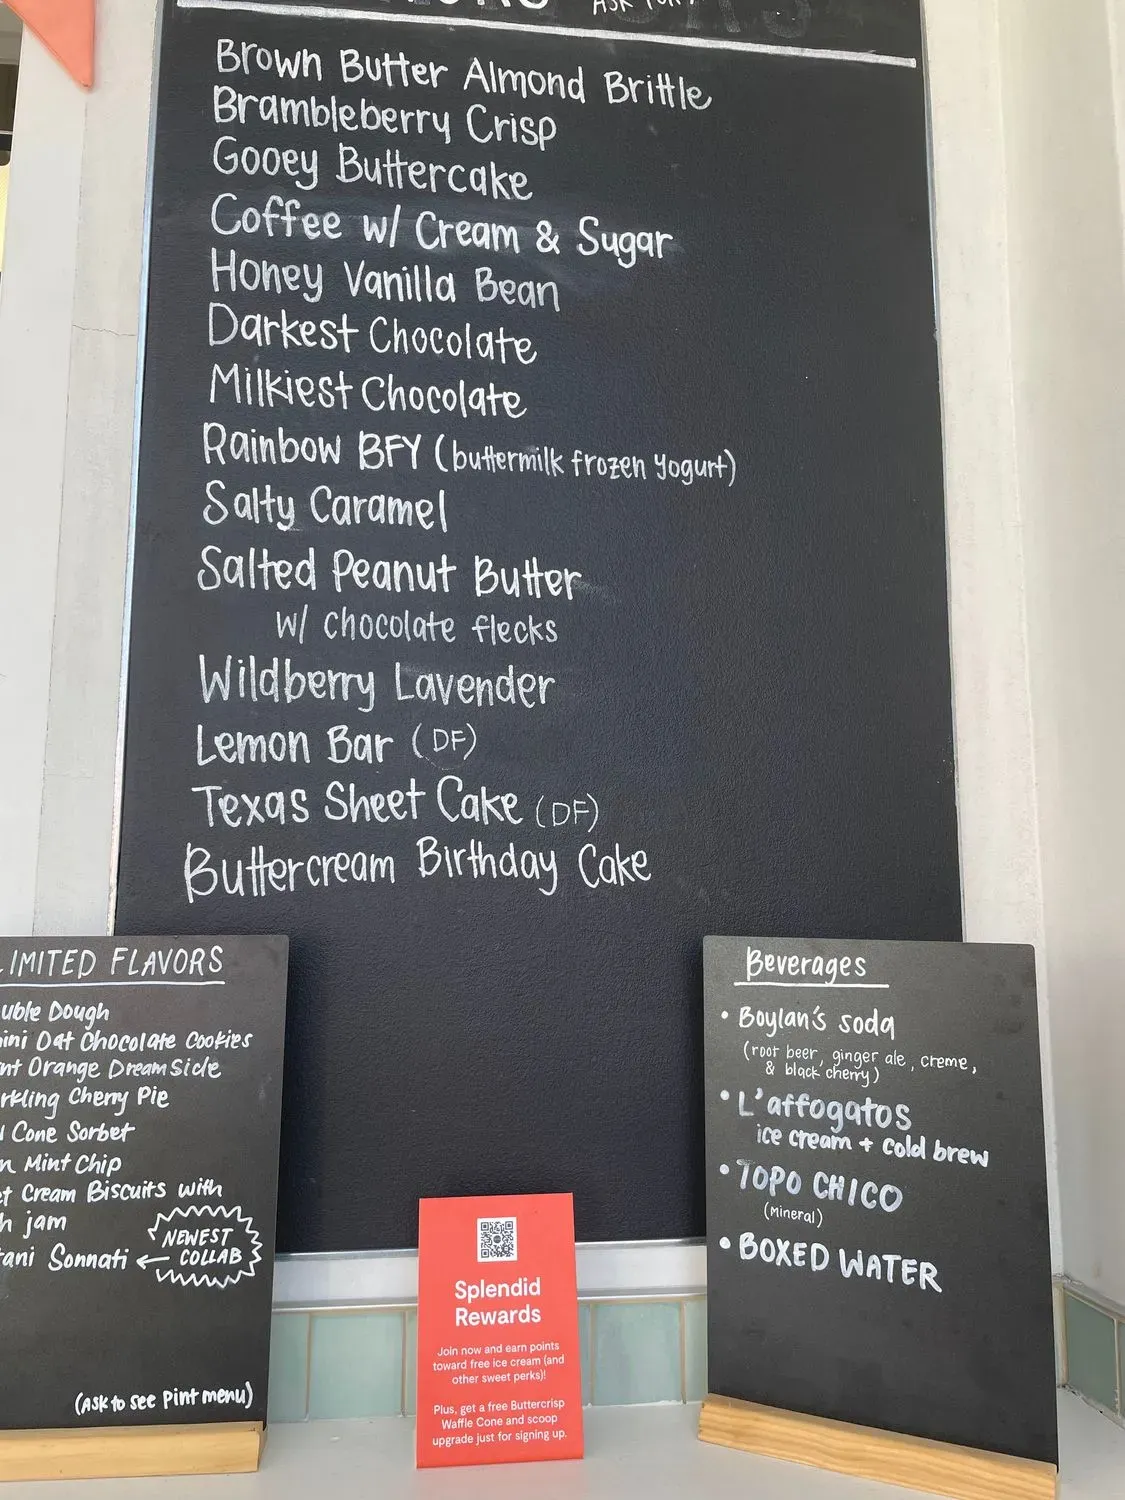 Brown Butter Almond Brittle
Brambleberry Crisp
Gooey Buttercake
Coffee w/ Cream & Sugar
Honey Vanilla Bean
Darkest Chocolate
Milkiest Chocolate
Rainbow BFY (buttermilk frozen yogurt)
Salty Caramel
Salted Peanut Butter
w/ chocolate flecks
Wildberry Lavender
Lemon Bar (DF)
Texas Sheet Cake (DF)
Buttercream Birthday Cake
LIMITED FLAVORS
Dough
Oat Chocolate Cookies
Orange DreamSicle
Cherry Pie
Cone Sorbet
Mint Chip
Cream Biscuits with
jam
Sonnati ←
NEWEST
COLLAB
(Ask to see Pint menu)
Splendid
Rewards
Join now and earn points
toward free ice cream (and
other sweet perks)!
Plus, get a free Buttercrisp
Waffle Cone and scoop
upgrade just for signing up.
Beverages
• Boylan's soda
(root beer, ginger ale, creme,
& black cherry)
• L'affogatos
ice cream + cold brew
• TOPO CHICO
(Mineral)
• BOXED WATER